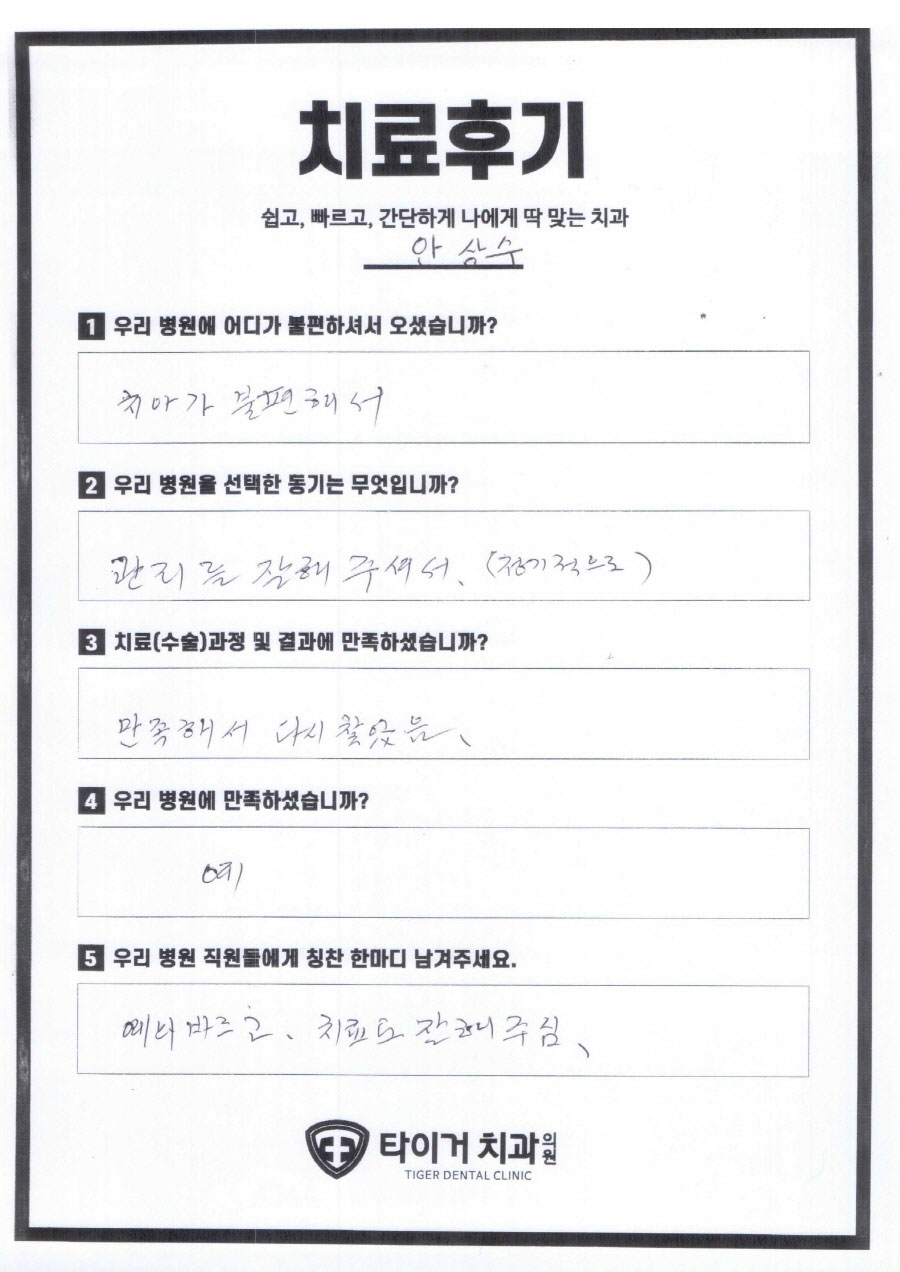 치료후기
쉽고, 빠르고, 간단하게 나에게 딱 맞는 치과
안상수
1 우리 병원에 어디가 불편하셔서 오셨습니까?
치아가 불편해서
2 우리 병원을 선택한 동기는 무엇입니까?
관리를 잘해 주셔서. (정기적으로)
3 치료(수술)과정 및 결과에 만족하셨습니까?
만족해서 다시 찾았음.
4 우리 병원에 만족하셨습니까?
예
5 우리 병원 직원들에게 칭찬 한마디 남겨주세요.
예의 바르고, 치료도 잘해 주심.
타이거 치과의원
TIGER DENTAL CLINIC